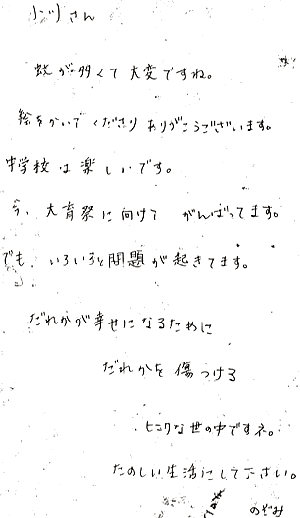 リンリンさん
蚊が多くて大変ですね。
絵をかいてくださり ありがとうございます。
中学校は楽しいです。
今、大育祭に向けて がんばってます。
でも、いろいろと問題が起きてます。
だれかが幸せになるために
だれかを傷つける
な世の中ですネ。
たのしい生活にして下さい。
のぞみ